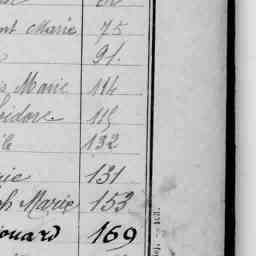 nt Marie 75
91
s Marie 114
sidore 115
E 132
rie 131
ph Marie 153
ouard 169